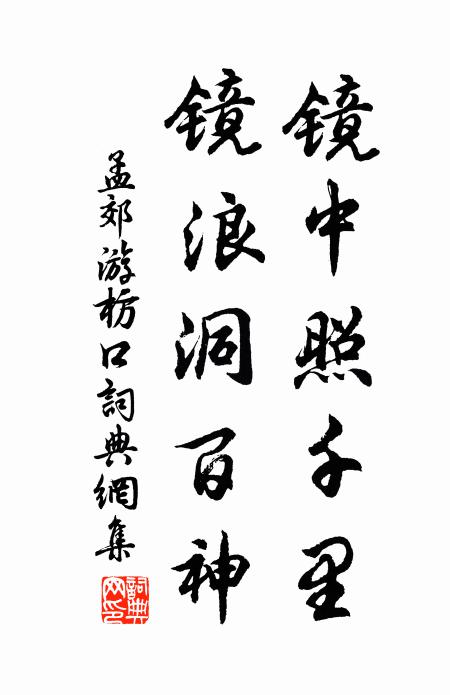 镜中照千里
镜浪洞百神
孟郊游枋口詞典網集
詞典
网印